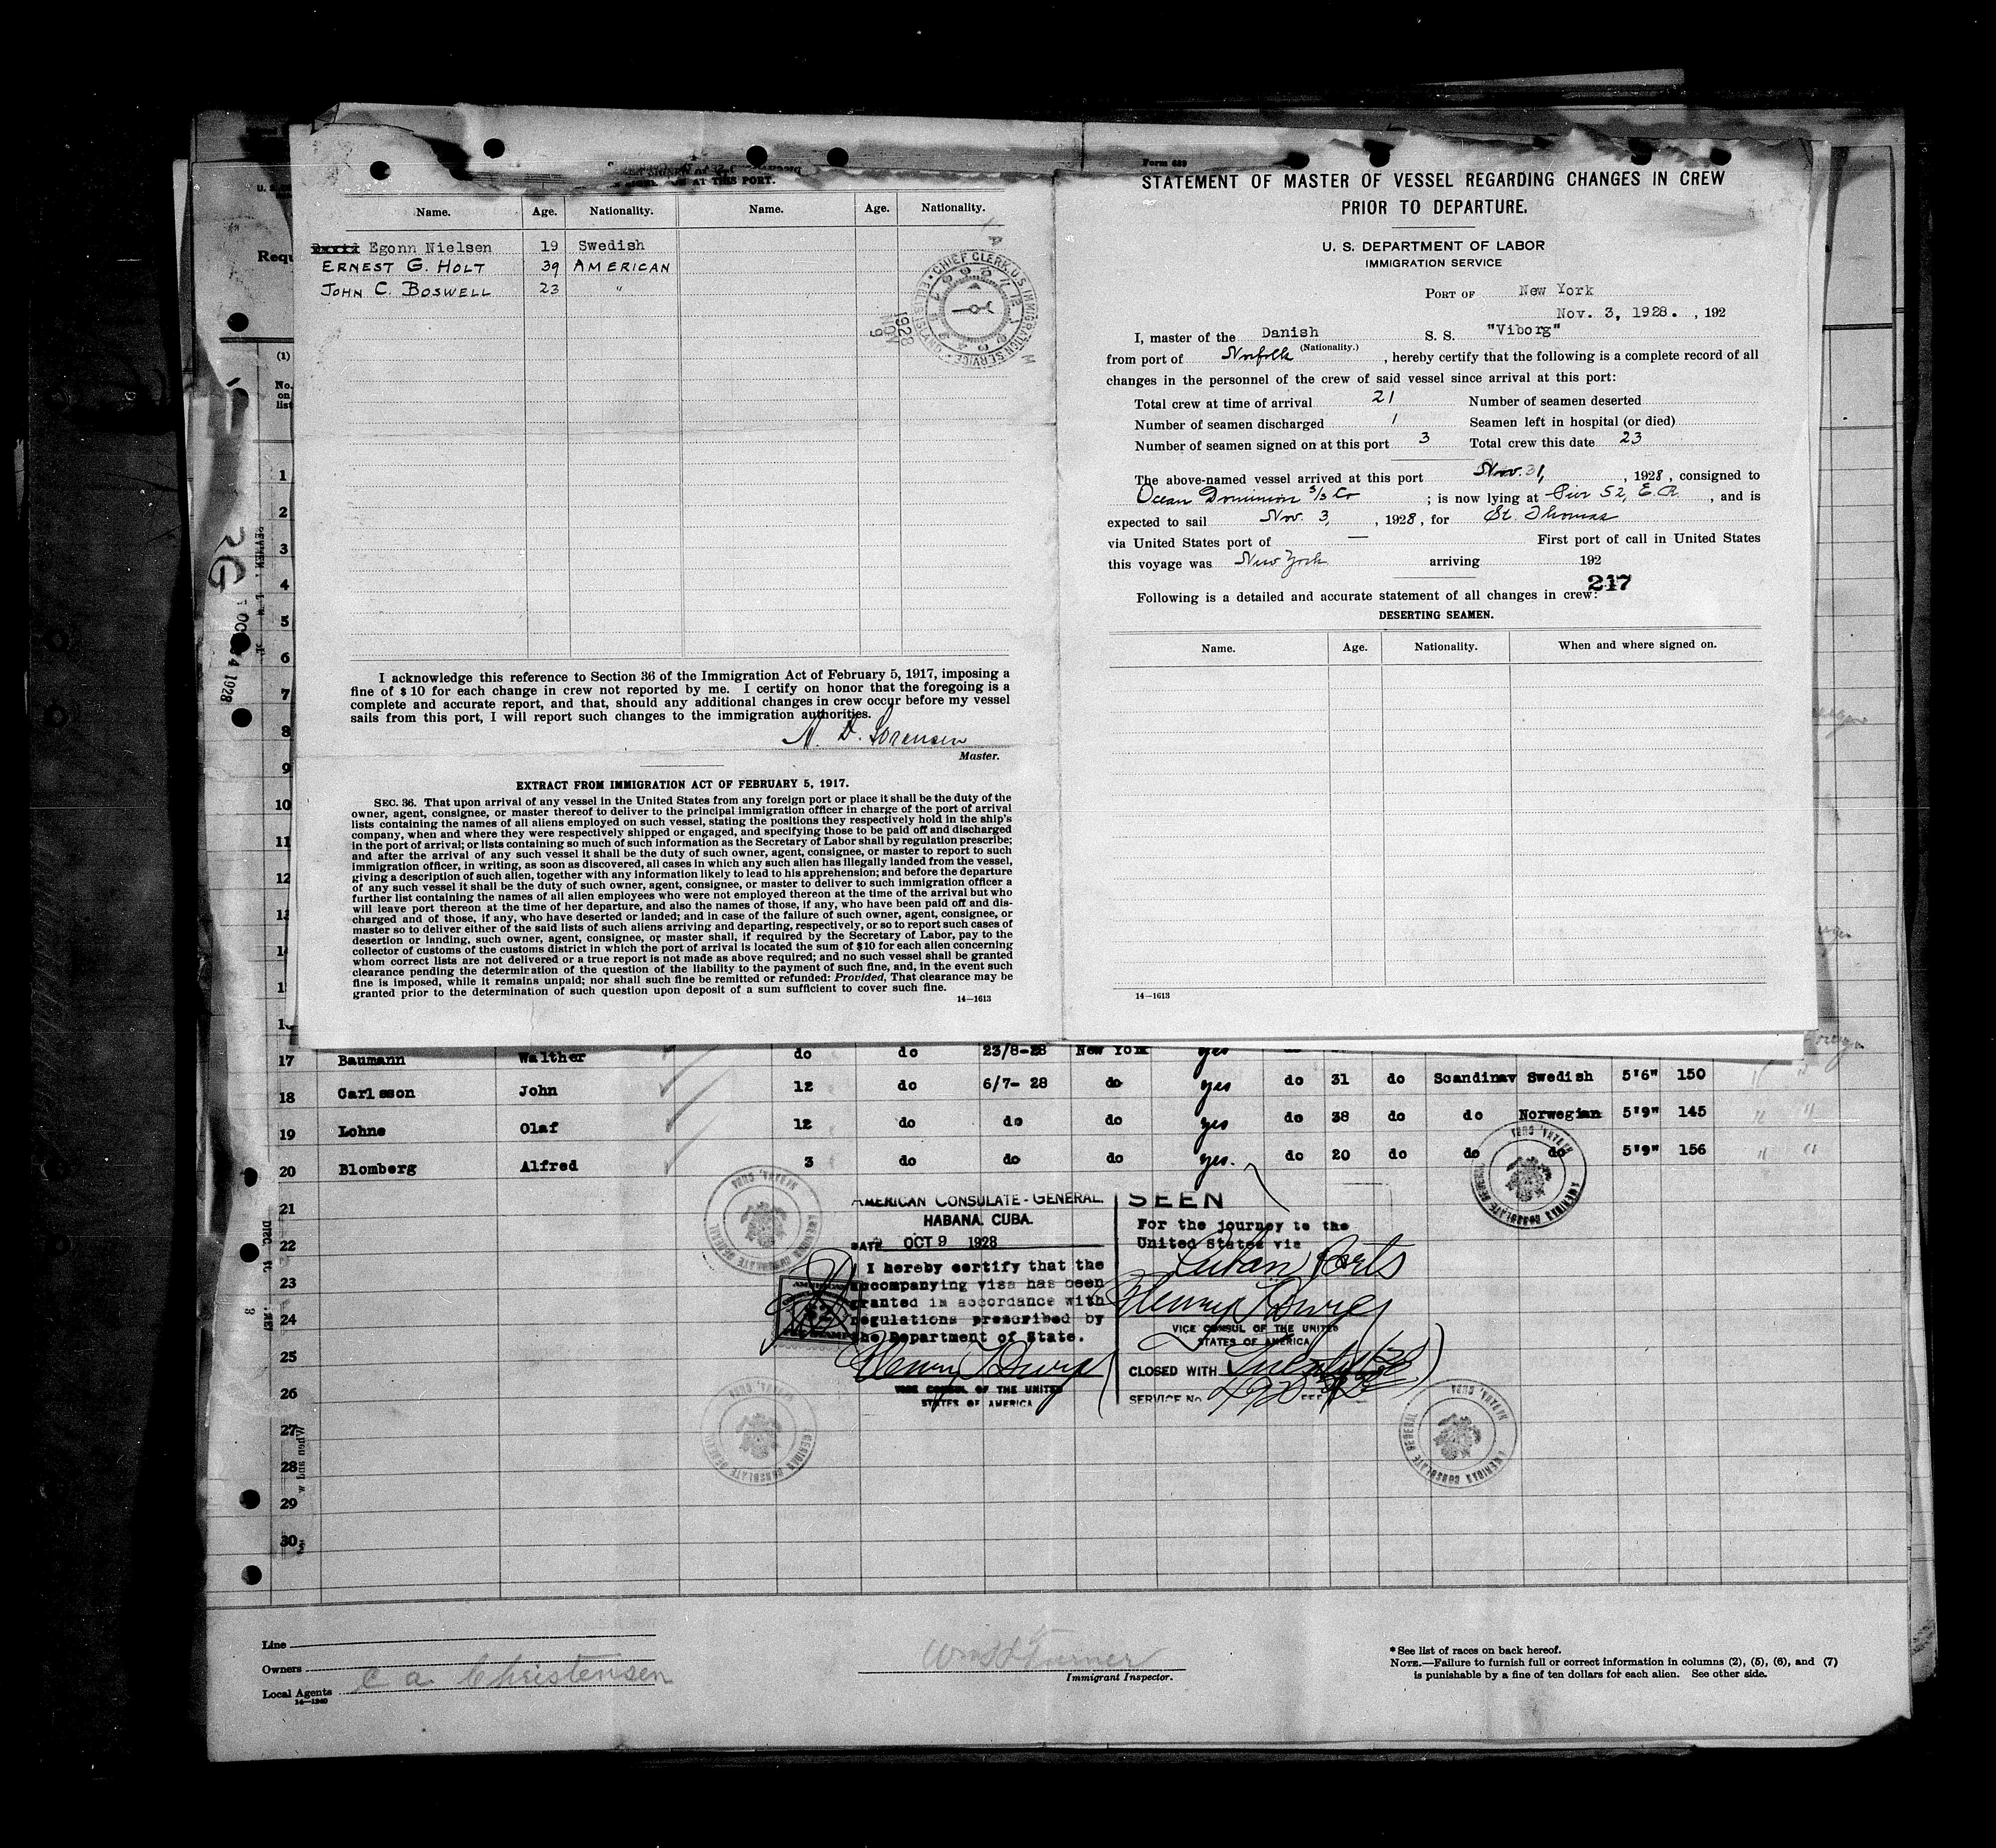 AT THIS PORT.
Name. Age. Nationality. Name. Age. Nationality.
Egonn Nielsen 19 Swedish
ERNEST G. HOLT 39 AMERICAN
JOHN C. BOSWELL 23 "
CHIEF CLERK, U.S. IMMIGRATION SERVICE
1928 NOV 9
I acknowledge this reference to Section 36 of the Immigration Act of February 5, 1917, imposing a
fine of $10 for each change in crew not reported by me. I certify on honor that the foregoing is a
complete and accurate report, and that, should any additional changes in crew occur before my vessel
sails from this port, I will report such changes to the immigration authorities.
Sorensen
Master.
EXTRACT FROM IMMIGRATION ACT OF FEBRUARY 5, 1917.
SEC. 36. That upon arrival of any vessel in the United States from any foreign port or place it shall be the duty of the
owner, agent, consignee, or master thereof to deliver to the principal immigration officer in charge of the port of arrival
lists containing the names of all aliens employed on such vessel, stating the positions they respectively hold in the ship's
company, when and where they were respectively shipped or engaged, and specifying those to be paid off and discharged
in the port of arrival; or lists containing so much of such information as the Secretary of Labor shall by regulation prescribe;
and after the arrival of any such vessel it shall be the duty of such owner, agent, consignee, or master to report to such
immigration officer, in writing, as soon as discovered, all cases in which any such alien has illegally landed from the vessel,
giving a description of such alien, together with any information likely to lead to his apprehension; and before the departure
of any such vessel it shall be the duty of such owner, agent, consignee, or master to deliver to such immigration officer a
further list containing the names of all alien employees who were not employed thereon at the time of the arrival but who
will leave port thereon at the time of her departure, and also the names of those, if any, who have been paid off and dis-
charged and of those, if any, who have deserted or landed; and in case of the failure of such owner, agent, consignee, or
master so to deliver either of the said lists of such aliens arriving and departing, respectively, or so to report such cases of
desertion or landing, such owner, agent, consignee, or master shall, if required by the Secretary of Labor, pay to the
collector of customs of the customs district in which the port of arrival is located the sum of $10 for each alien concerning
whom correct lists are not delivered or a true report is not made as above required; and no such vessel shall be granted
clearance pending the determination of the question of the liability to the payment of such fine, and, in the event such
fine is imposed, while it remains unpaid; nor shall such fine be remitted or refunded: Provided, That clearance may be
granted prior to the determination of such question upon deposit of a sum sufficient to cover such fine.
14—1613
Form 689
STATEMENT OF MASTER OF VESSEL REGARDING CHANGES IN CREW
PRIOR TO DEPARTURE.
U. S. DEPARTMENT OF LABOR
IMMIGRATION SERVICE
PORT OF New York
Nov. 3, 1928. , 192
I, master of the Danish S. S. "Viborg"
(Nationality.)
from port of Norfolk , hereby certify that the following is a complete record of all
changes in the personnel of the crew of said vessel since arrival at this port:
Total crew at time of arrival 21 Number of seamen deserted
Number of seamen discharged 1 Seamen left in hospital (or died)
Number of seamen signed on at this port 3 Total crew this date 23
The above-named vessel arrived at this port Nov. 31, , 1928, consigned to
Ocean Dominion S/S Co ; is now lying at Pier 52, E.R. , and is
expected to sail Nov. 3, , 1928, for St. Thomas
via United States port of — First port of call in United States
this voyage was New York arriving 192
217
Following is a detailed and accurate statement of all changes in crew:
DESERTING SEAMEN.
Name. Age. Nationality. When and where signed on.
14—1613
Requ
(1)
No. on list
1
2
3
4
5
6
7
8
9
10
11
12
13
14
17 Baumann Walther do do 23/8-28 New York yes do
18 Carlsson John 12 do 6/7- 28 do yes do 31 do Scandinav Swedish 5'6" 150 " "
19 Lohne Olaf 12 do do do yes do 38 do do Norwegian 5'9" 145 " "
20 Blomberg Alfred 3 do do do yes. do 20 do do do 5'9" 156 " "
21
22
23
24
25
26
27
28
29
30
AMERICAN CONSULATE GENERAL HABANA, CUBA
AMERICAN CONSULATE-GENERAL.
HABANA, CUBA.
DATE OCT 9 1928
I hereby certify that the
accompanying visa has been
granted in accordance with
regulations prescribed by
the Department of State.
VICE CONSUL OF THE UNITED
STATES OF AMERICA
SEEN
For the journey to the
United States via
Cuban Ports
VICE CONSUL OF THE UNITED
STATES OF AMERICA
CLOSED WITH
SERVICE No. FEE
Line
Owners
Local Agents C a. Christensen
14—1240
Turner
Immigrant Inspector.
* See list of races on back hereof.
NOTE.—Failure to furnish full or correct information in columns (2), (5), (6), and (7)
is punishable by a fine of ten dollars for each alien. See other side.